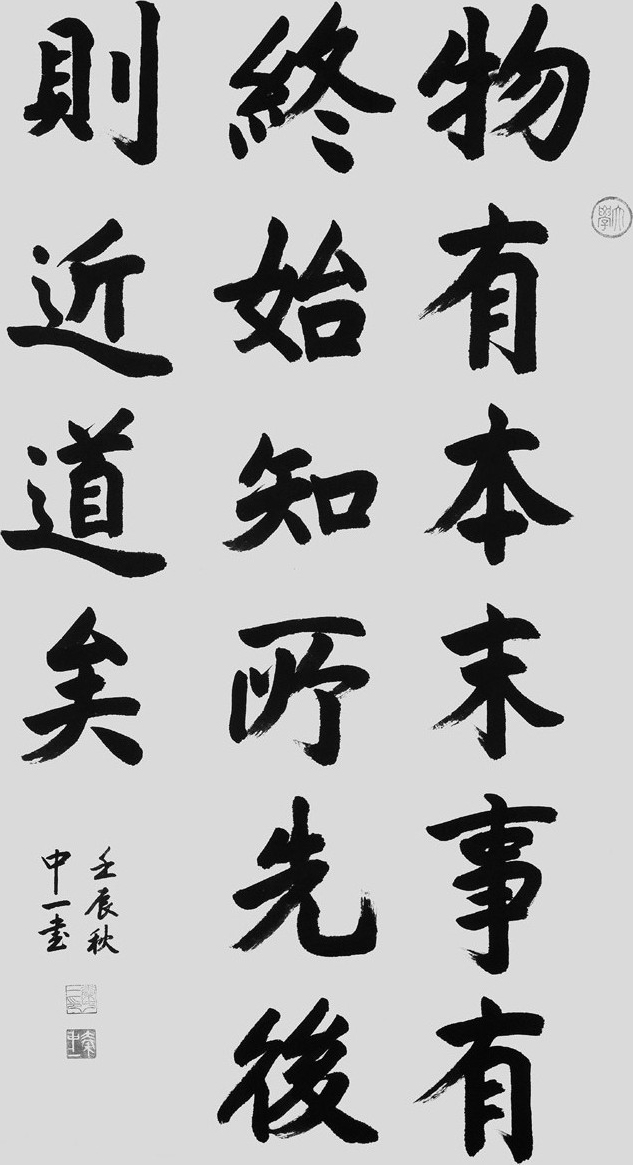 物有本末事有
終始知所先後
則近道矣
壬辰秋
中一書
大學